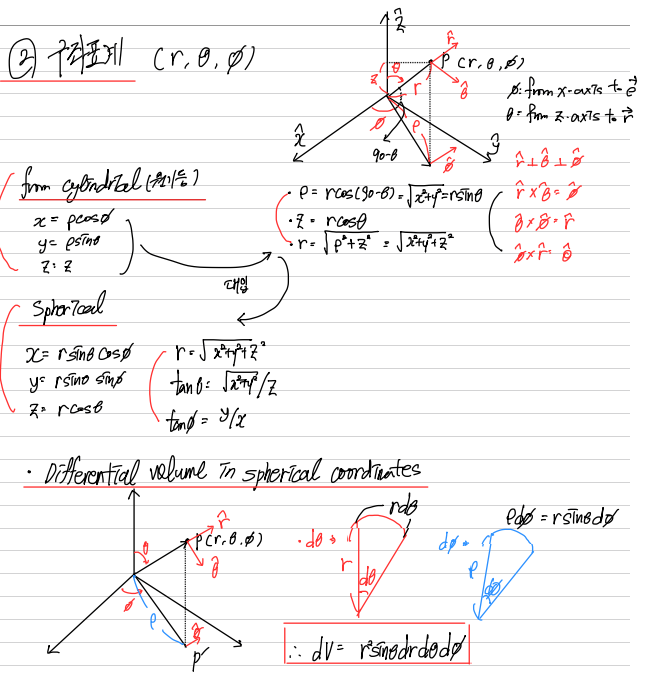 ② 구좌표계 (r, θ, ϕ)
ẑ
r̂
P (r, θ, ϕ)
θ
z
r
θ̂
ϕ
ρ
x̂
90-θ
ϕ̂
ŷ
ϕ: from x-axis to ρ⃗
θ: from z-axis to r⃗
r̂ ⊥ θ̂ ⊥ ϕ̂
r̂ × θ̂ = ϕ̂
θ̂ × ϕ̂ = r̂
ϕ̂ × r̂ = θ̂
from cylindrical
x = ρcosϕ
y = ρsinθ
z = z
· ρ = rcos(90-θ) = √x²+y² = rsinθ
· z = rcosθ
· r = √ρ²+z² = √x²+y²+z²
대입
Spherical
x = rsinθ cosϕ
y = rsinθ sinϕ
z = rcosθ
r = √x²+y²+z²
tanθ = √x²+y²/z
tanϕ = y/x
· Differential volume in spherical coordinates
r̂
P(r, θ, ϕ)
θ
θ̂
ϕ
ρ
ϕ̂
P'
rdθ
· dθ →
r
dθ
ρdϕ = rsinθdϕ
dϕ →
ρ
dϕ
∴ dV = r²sinθdrdθdϕ